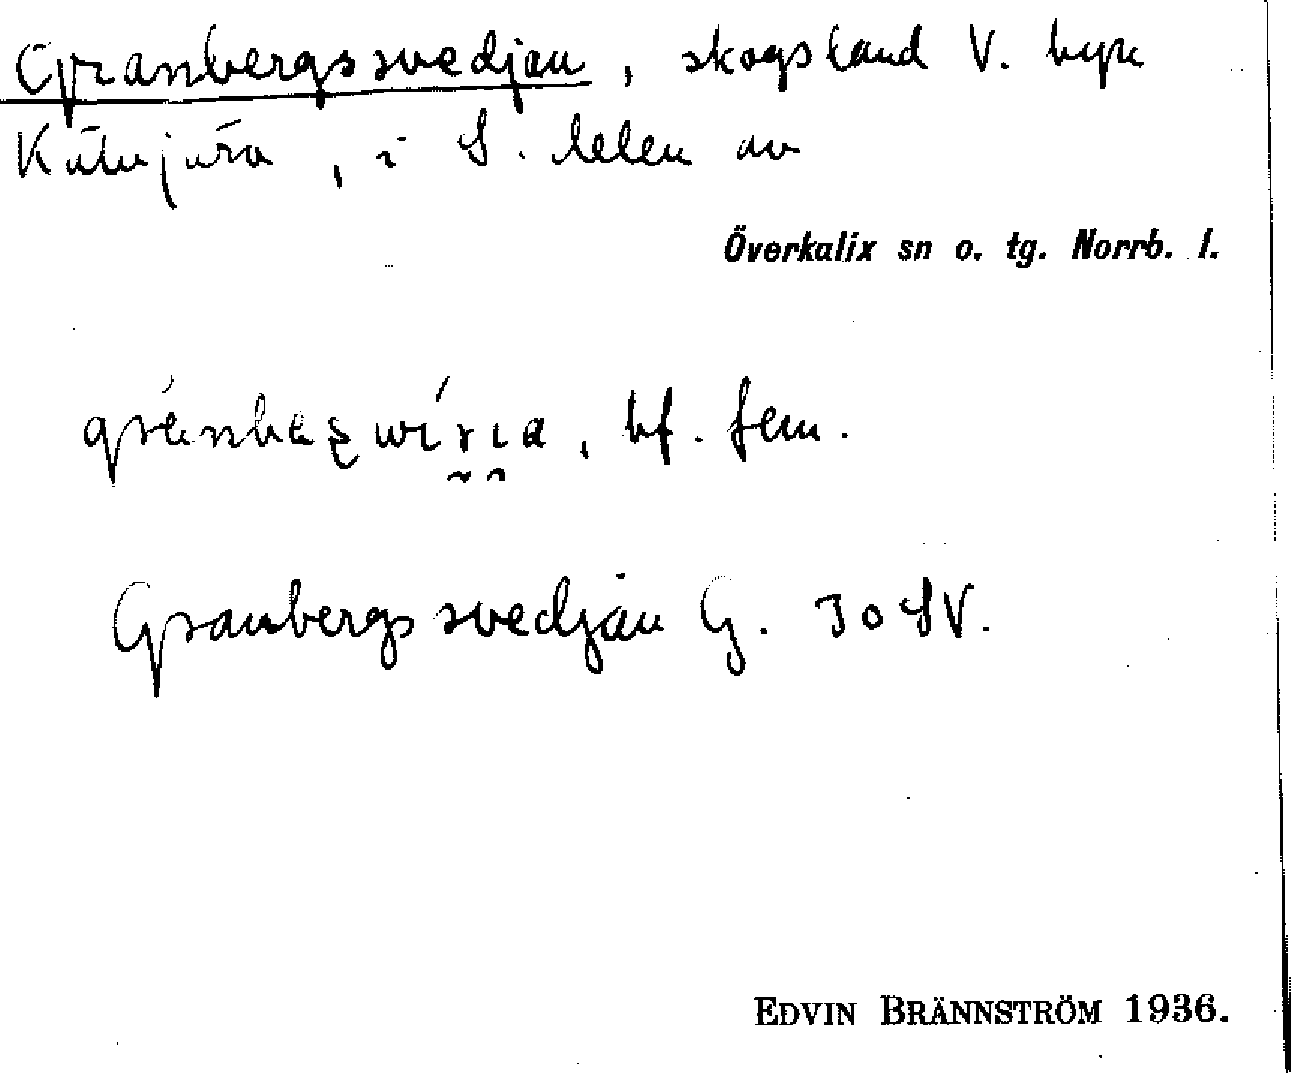 Granbergssvedjan, skogsland V. byn
i S. delen av
Överkalix sn o. tg. Norrb. l.
bf. fem.
Granbergssvedjan G. 30 SV.
EDVIN BRÄNNSTRÖM 1936.